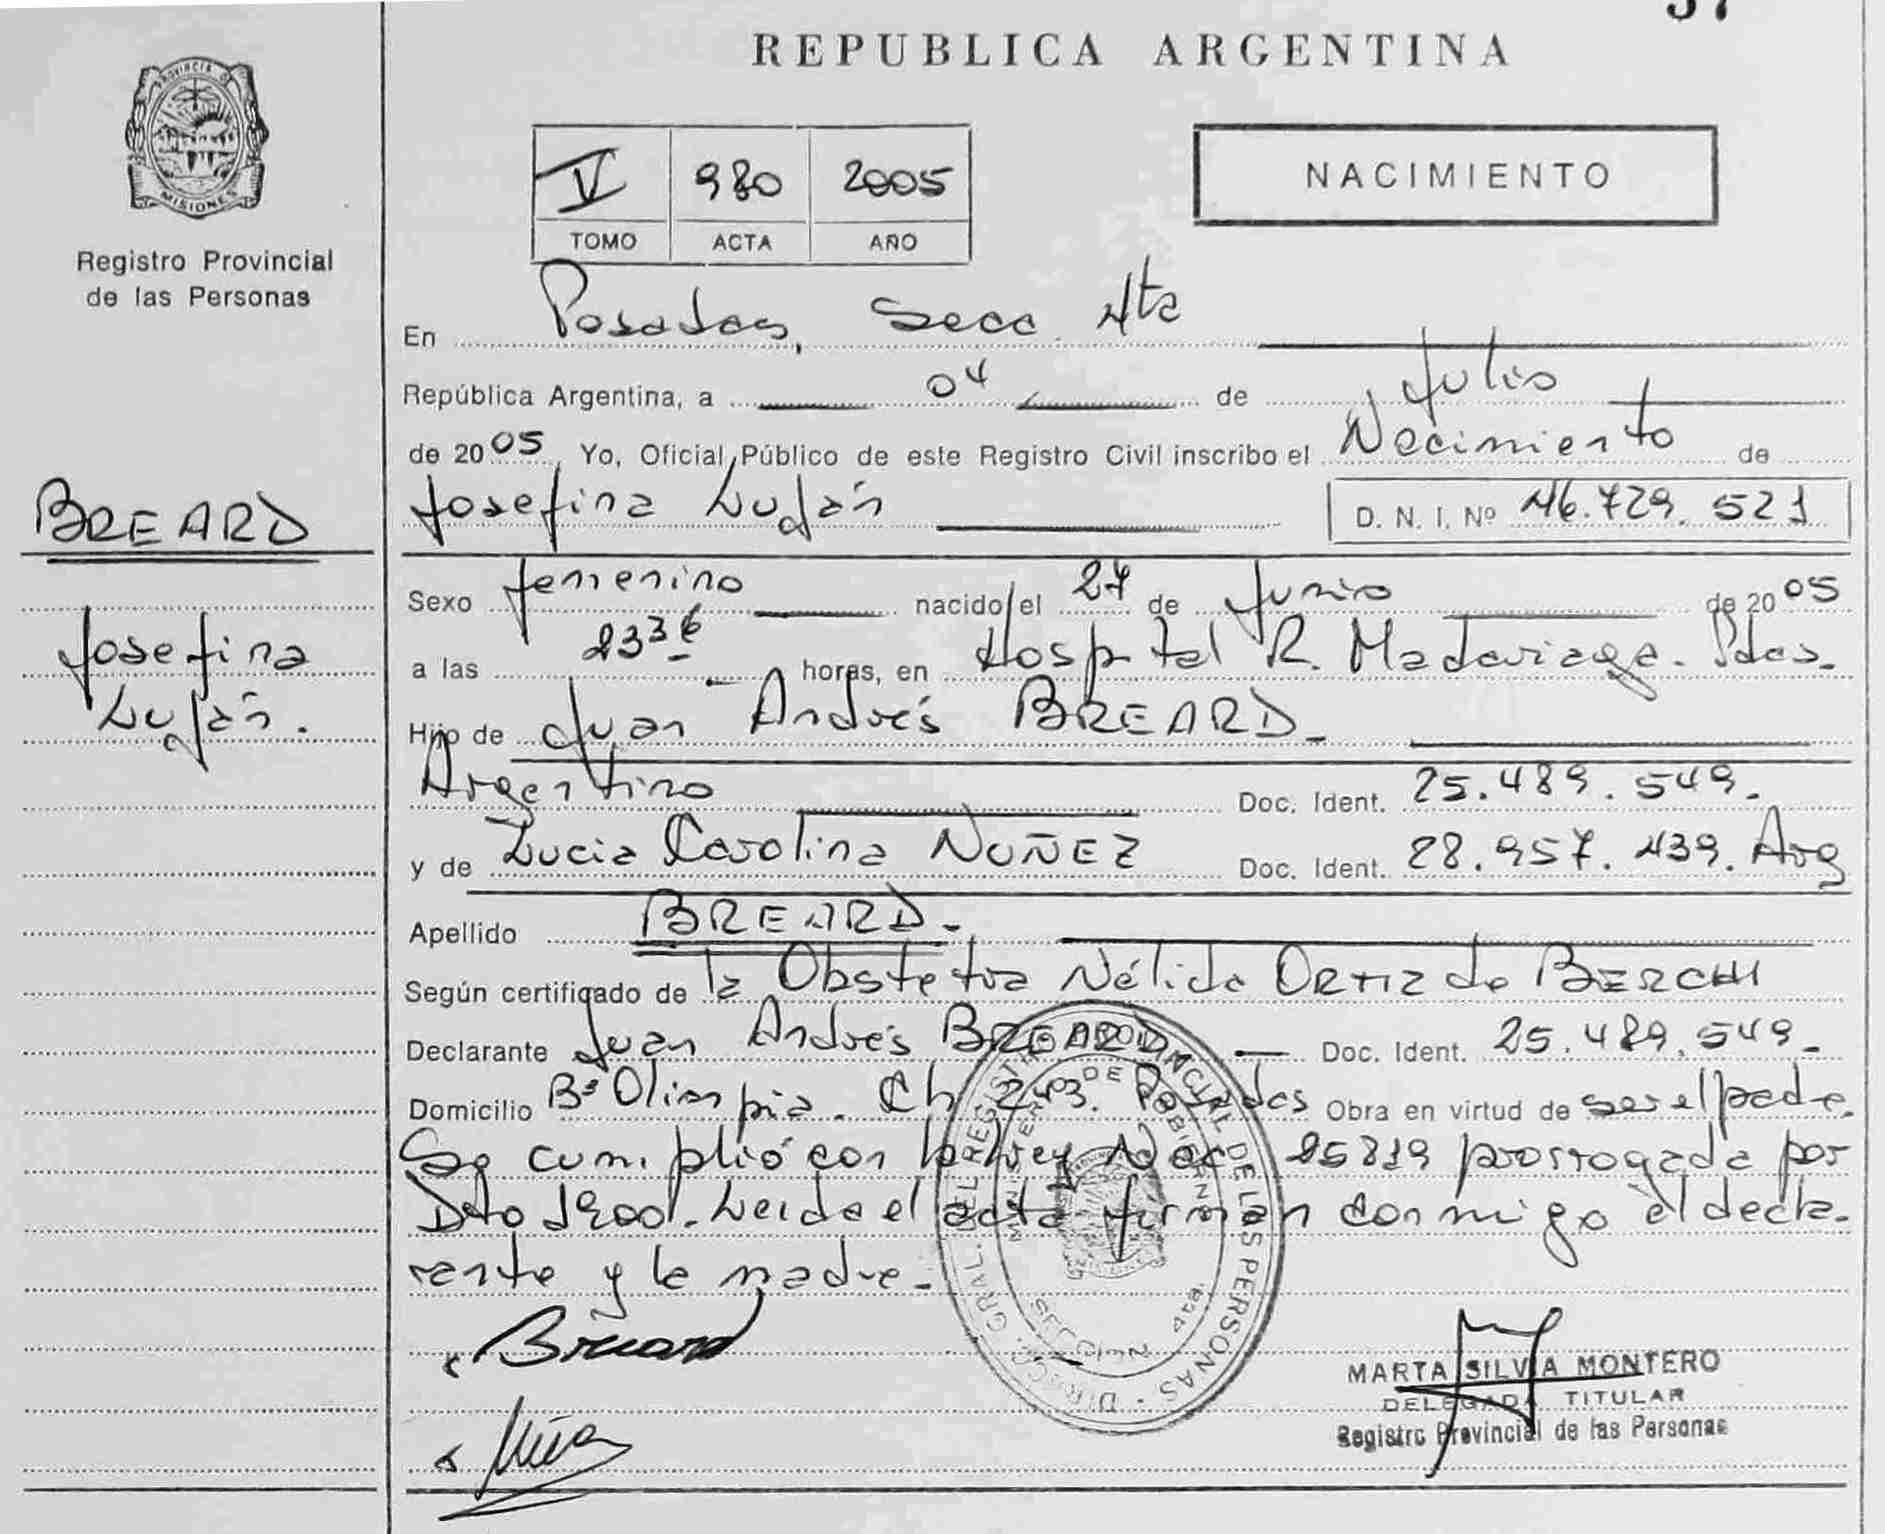 37
REPUBLICA ARGENTINA
PROVINCIA DE
MISIONES
Registro Provincial
de las Personas
V 980 2005
TOMO ACTA AÑO
NACIMIENTO
En Posadas, Secc 4ta
República Argentina, a 04 de Julio
de 2005 Yo, Oficial Público de este Registro Civil inscribo el Nacimiento de
Josefina Luján D. N. I. Nº 46.729.521
BREARD
Josefina
Luján.
Sexo femenino nacido el 27 de Junio de 2005
a las 2336 horas, en Hospital R. Madariaga. Pdas.
Hijo de Juan Andrés BREARD
Argentino Doc. Ident. 25.489.549.
y de Lucia Carolina NUÑEZ Doc. Ident. 28.957.439. Arg
Apellido BREARD.
Según certificado de la Obstetra Nélida ORTIZ de BERCHI
Declarante Juan Andrés BREARD Doc. Ident. 25.489.549.
Domicilio Bº Olimpia. Ch 243. Posadas Obra en virtud de ser el padre.
Se cumplió con la Ley Nac 25819 prorrogada por
Dto 1900. Leida el acta firman conmigo el decla-
rante y la madre.
Breard
DIRECC. GRAL. DEL REGISTRO PROVINCIAL DE LAS PERSONAS
MINISTERIO DE GOBIERNO
SECCION 4ta.
MARTA SILVIA MONTERO
DELEGADA TITULAR
Registro Provincial de las Personas